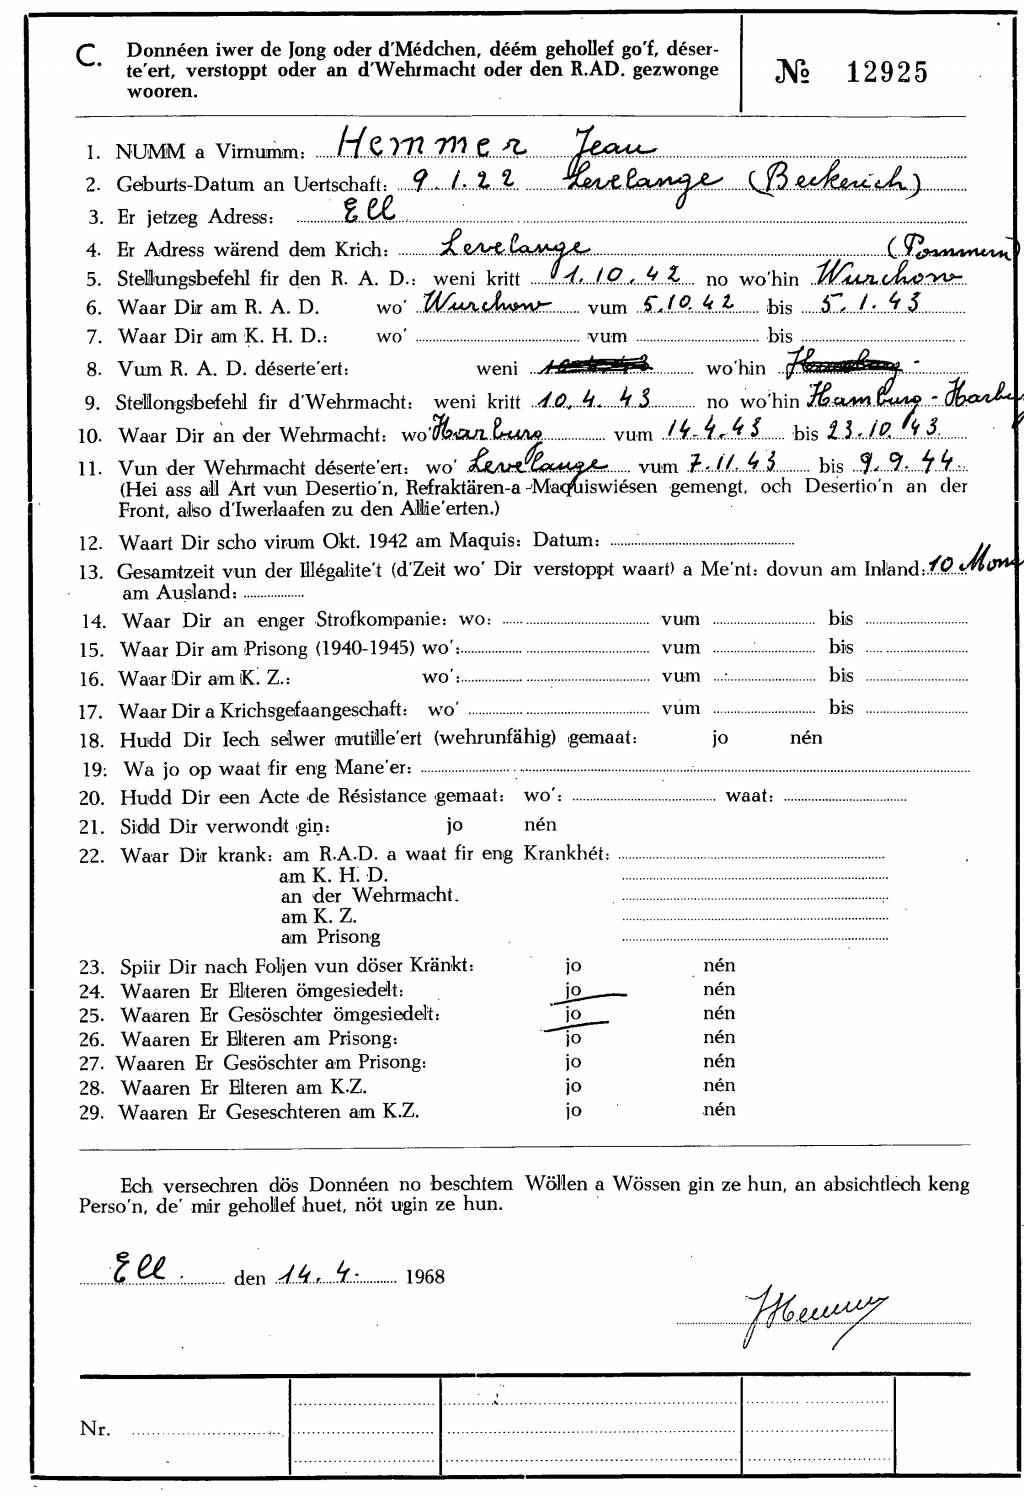 C. Donnéen iwer de Jong oder d'Médchen, déém gehollef go'f, déser-
te'ert, verstoppt oder an d'Wehrmacht oder den R.AD. gezwonge
wooren.
№ 12925
1. NUMM a Virnumm: Hemmer Jean
2. Geburts-Datum an Uertschaft: 9.1.22 Levelange (Beckerich)
3. Er jetzeg Adress: Ell
4. Er Adress wärend dem Krich: Levelange (Pommern)
5. Stellungsbefehl fir den R. A. D.: weni kritt 1.10.42 no wo'hin Wurchow
6. Waar Dir am R. A. D. wo' Wurchow vum 5.10.42 bis 5.1.43
7. Waar Dir am K. H. D.: wo' vum bis
8. Vum R. A. D. déserte'ert: weni wo'hin
9. Stellongsbefehl fir d'Wehrmacht: weni kritt 10.4.43 no wo'hin Hamburg - Harburg
10. Waar Dir an der Wehrmacht: wo' Harburg vum 14.4.43 bis 23.10.43
11. Vun der Wehrmacht déserte'ert: wo' Levelange vum 7.11.43 bis 9.9.44
(Hei ass all Art vun Desertio'n, Refraktären-a-Maquiswiésen gemengt, och Desertio'n an der
Front, also d'Iwerlaafen zu den Allie'erten.)
12. Waart Dir scho virum Okt. 1942 am Maquis: Datum:
13. Gesamtzeit vun der Illégalite't (d'Zeit wo' Dir verstoppt waart) a Me'nt: dovun am Inland: 10 Mon
am Ausland:
14. Waar Dir an enger Strofkompanie: wo: vum bis
15. Waar Dir am Prisong (1940-1945) wo': vum bis
16. Waar Dir am K. Z.: wo': vum bis
17. Waar Dir a Krichsgefaangeschaft: wo' vum bis
18. Hudd Dir Iech selwer mutille'ert (wehrunfähig) gemaat: jo nén
19: Wa jo op waat fir eng Mane'er:
20. Hudd Dir een Acte de Résistance gemaat: wo': waat:
21. Sidd Dir verwondt gin: jo nén
22. Waar Dir krank: am R.A.D. a waat fir eng Krankhét:
am K. H. D.
an der Wehrmacht.
am K. Z.
am Prisong
23. Spiir Dir nach Foljen vun döser Kränkt: jo nén
24. Waaren Er Elteren ömgesiedelt: jo nén
25. Waaren Er Gesöschter ömgesiedelt: jo nén
26. Waaren Er Elteren am Prisong: jo nén
27. Waaren Er Gesöschter am Prisong: jo nén
28. Waaren Er Elteren am K.Z. jo nén
29. Waaren Er Geseschteren am K.Z. jo nén
Ech versechren dös Donnéen no beschtem Wöllen a Wössen gin ze hun, an absichtlech keng
Perso'n, de' mir gehollef huet, nöt ugin ze hun.
Ell den 14.4. 1968
J Hemmer
Nr.